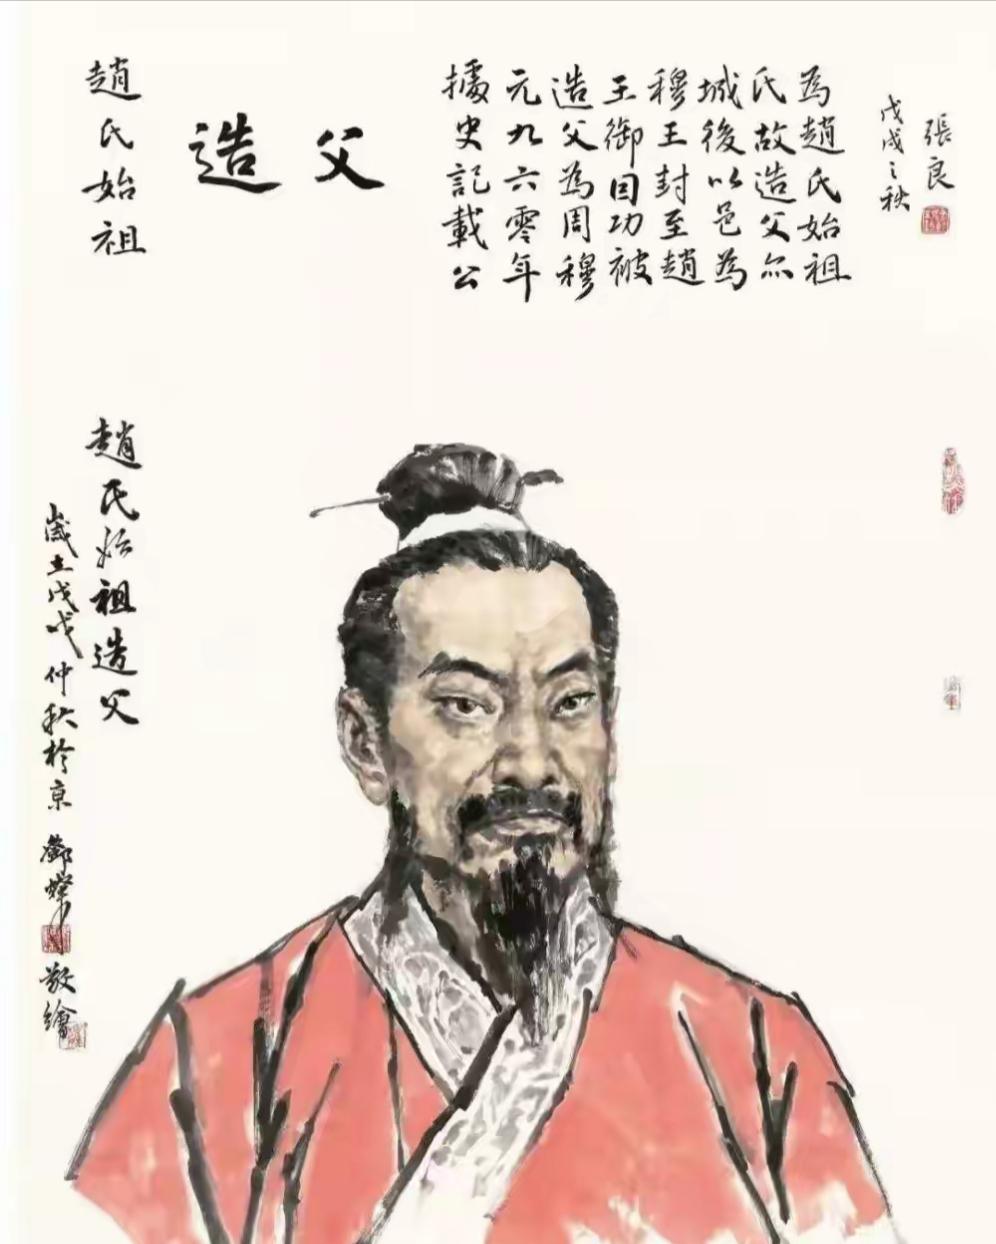 趙氏始祖
造父
據史記載公
元九六零年
造父為周穆
王御因功被
穆王封至趙
城後以邑為
氏故造父亦
為趙氏始祖
戊戌之秋
張良
趙氏始祖造父
歲在戊戌仲秋於京
敬繪